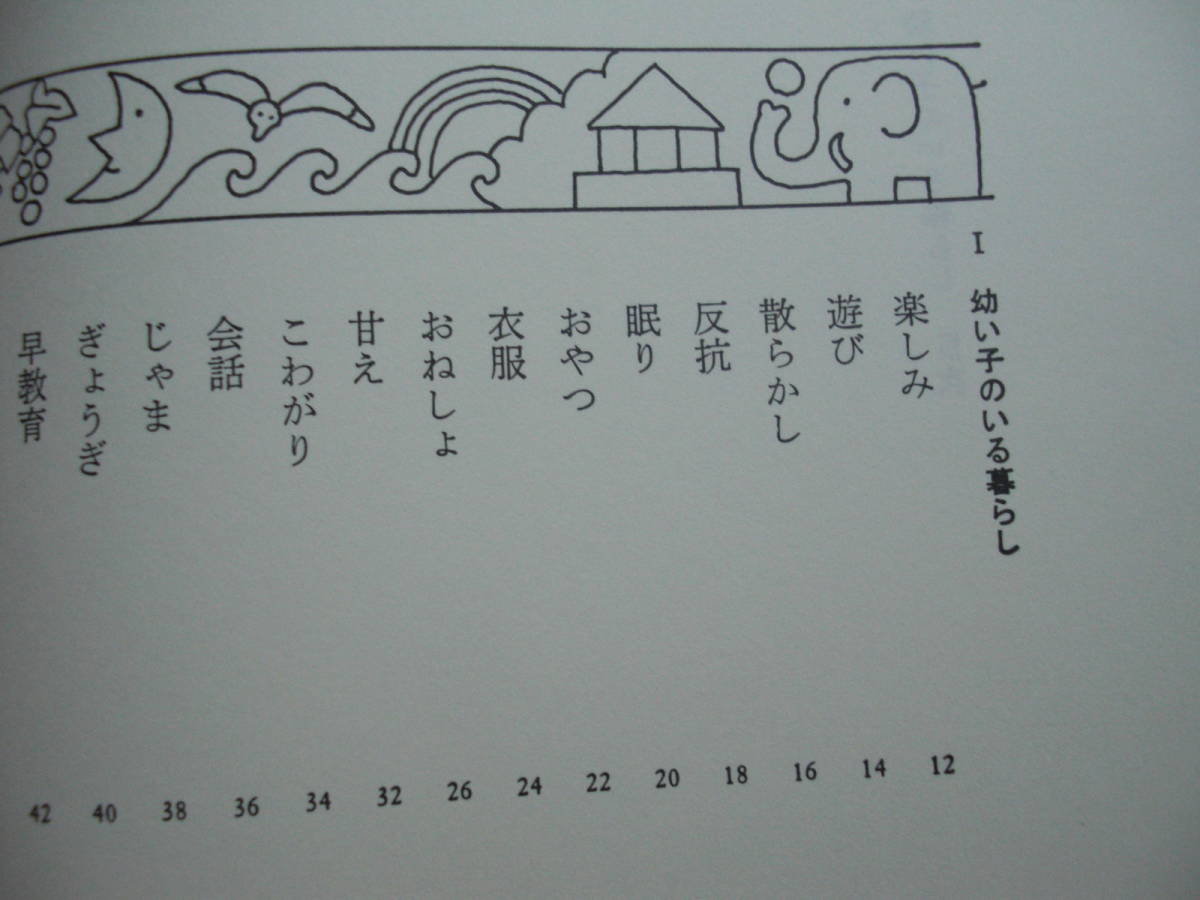 I 幼い子のいる暮らし
楽しみ 12
遊び 14
散らかし 16
反抗 18
眠り 20
おやつ 22
衣服 24
おねしょ 26
甘え 32
こわがり 34
会話 36
じゃま 38
ぎょうぎ 40
早教育 42